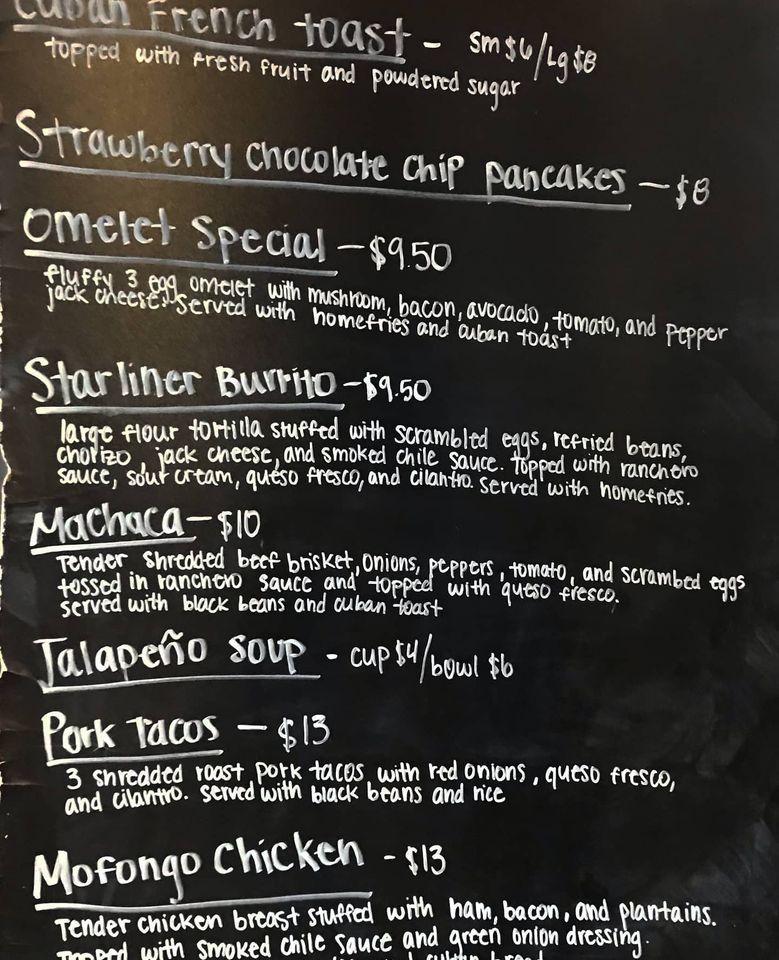 Cuban French toast - sm $6/Lg $8
topped with fresh fruit and powdered sugar
Strawberry chocolate chip pancakes - $8
Omelet Special - $9.50
fluffy 3 egg omelet with mushroom, bacon, avocado, tomato, and pepper
jack cheese. served with homefries and cuban toast
Starliner Burrito - $9.50
large flour tortilla stuffed with scrambled eggs, refried beans,
chorizo, jack cheese, and smoked chile sauce. topped with ranchero
sauce, sour cream, queso fresco, and cilantro. served with homefries.
Machaca - $10
Tender shredded beef brisket, onions, peppers, tomato, and scrambed eggs
tossed in ranchero sauce and topped with queso fresco.
served with black beans and cuban toast
Jalapeño soup - cup $4/bowl $6
Pork Tacos - $13
3 shredded roast pork tacos with red onions, queso fresco,
and cilantro. served with black beans and rice
Mofongo Chicken - $13
Tender chicken breast stuffed with ham, bacon, and plantains.
Topped with smoked chile sauce and green onion dressing.